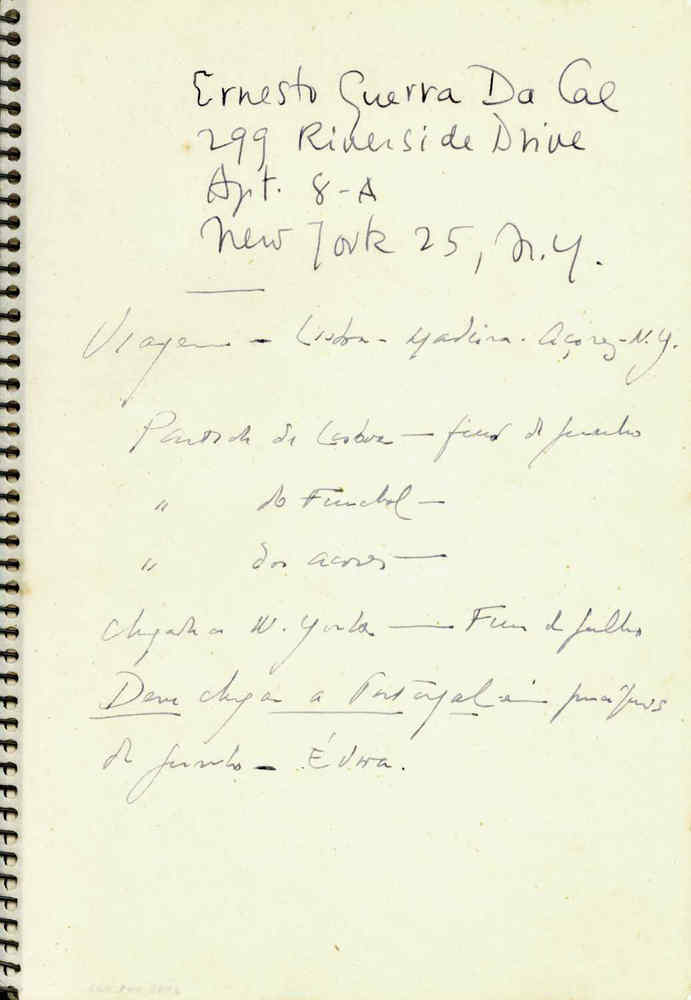 Ernesto Guerra Da Cal
299 Riverside Drive
Apt. 8-A
New York 25, N.Y.
Viagem - Lisboa - Madeira - Açores - N.Y.
Partida de Lisboa — fins de junho
" do Funchal —
" dos Açores —
chegada a N. York — Fins de julho
Deve chegar a Portugal em princípios
de junho - Évora.